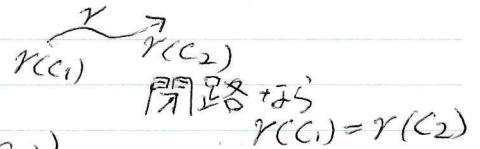 γ
γ(C₁) γ(C₂)
閉路なら
γ(C₁) = γ(C₂)